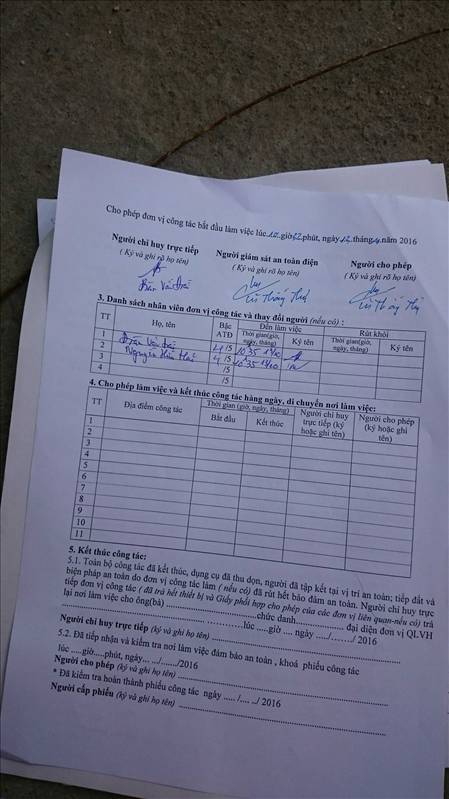 Cho phép đơn vị công tác bắt đầu làm việc lúc 10 giờ 32 phút, ngày 12 tháng 9 năm 2016
Người chỉ huy trực tiếp Người giám sát an toàn điện Người cho phép
( Ký và ghi rõ họ tên) ( Ký và ghi rõ họ tên) ( Ký và ghi rõ họ tên)
3. Danh sách nhân viên đơn vị công tác và thay đổi người (nếu có) :
TT Họ, tên Bậc ATĐ Đến làm việc Rút khỏi
Thời gian(giờ, ngày, tháng) Ký tên Thời gian(giờ, ngày, tháng) Ký tên
1 4/5
2 4/5
3 /5
4 /5
4. Cho phép làm việc và kết thúc công tác hàng ngày, di chuyển nơi làm việc:
TT Địa điểm công tác Thời gian (giờ, ngày, tháng) Người chỉ huy trực tiếp (ký hoặc ghi tên) Người cho phép (ký hoặc ghi tên)
Bắt đầu Kết thúc
1
2
3
4
5
6
7
8
9
10
11
5. Kết thúc công tác:
5.1. Toàn bộ công tác đã kết thúc, dụng cụ đã thu dọn, người đã tập kết tại vị trí an toàn; tiếp đất và
biện pháp an toàn do đơn vị công tác làm ( nếu có) đã rút hết bảo đảm an toàn. Người chỉ huy trực
tiếp đơn vị công tác ( đã trả hết thiết bị và Giấy phối hợp cho phép của các đơn vị liên quan-nếu có) trả
lại nơi làm việc cho ông(bà) ..........chức danh.......... đại diện đơn vị QLVH
..........lúc .....giờ .... ngày ...../...../ 2016
Người chỉ huy trực tiếp (ký và ghi họ tên)
5.2. Đã tiếp nhận và kiểm tra nơi làm việc đảm bảo an toàn , khoá phiếu công tác
lúc ....giờ.....phút, ngày... .../......./2016
Người cho phép (ký và ghi họ tên)
* Đã kiểm tra hoàn thành phiếu công tác ngày ..... /.... ../ 2016
Người cấp phiếu (ký và ghi họ tên)